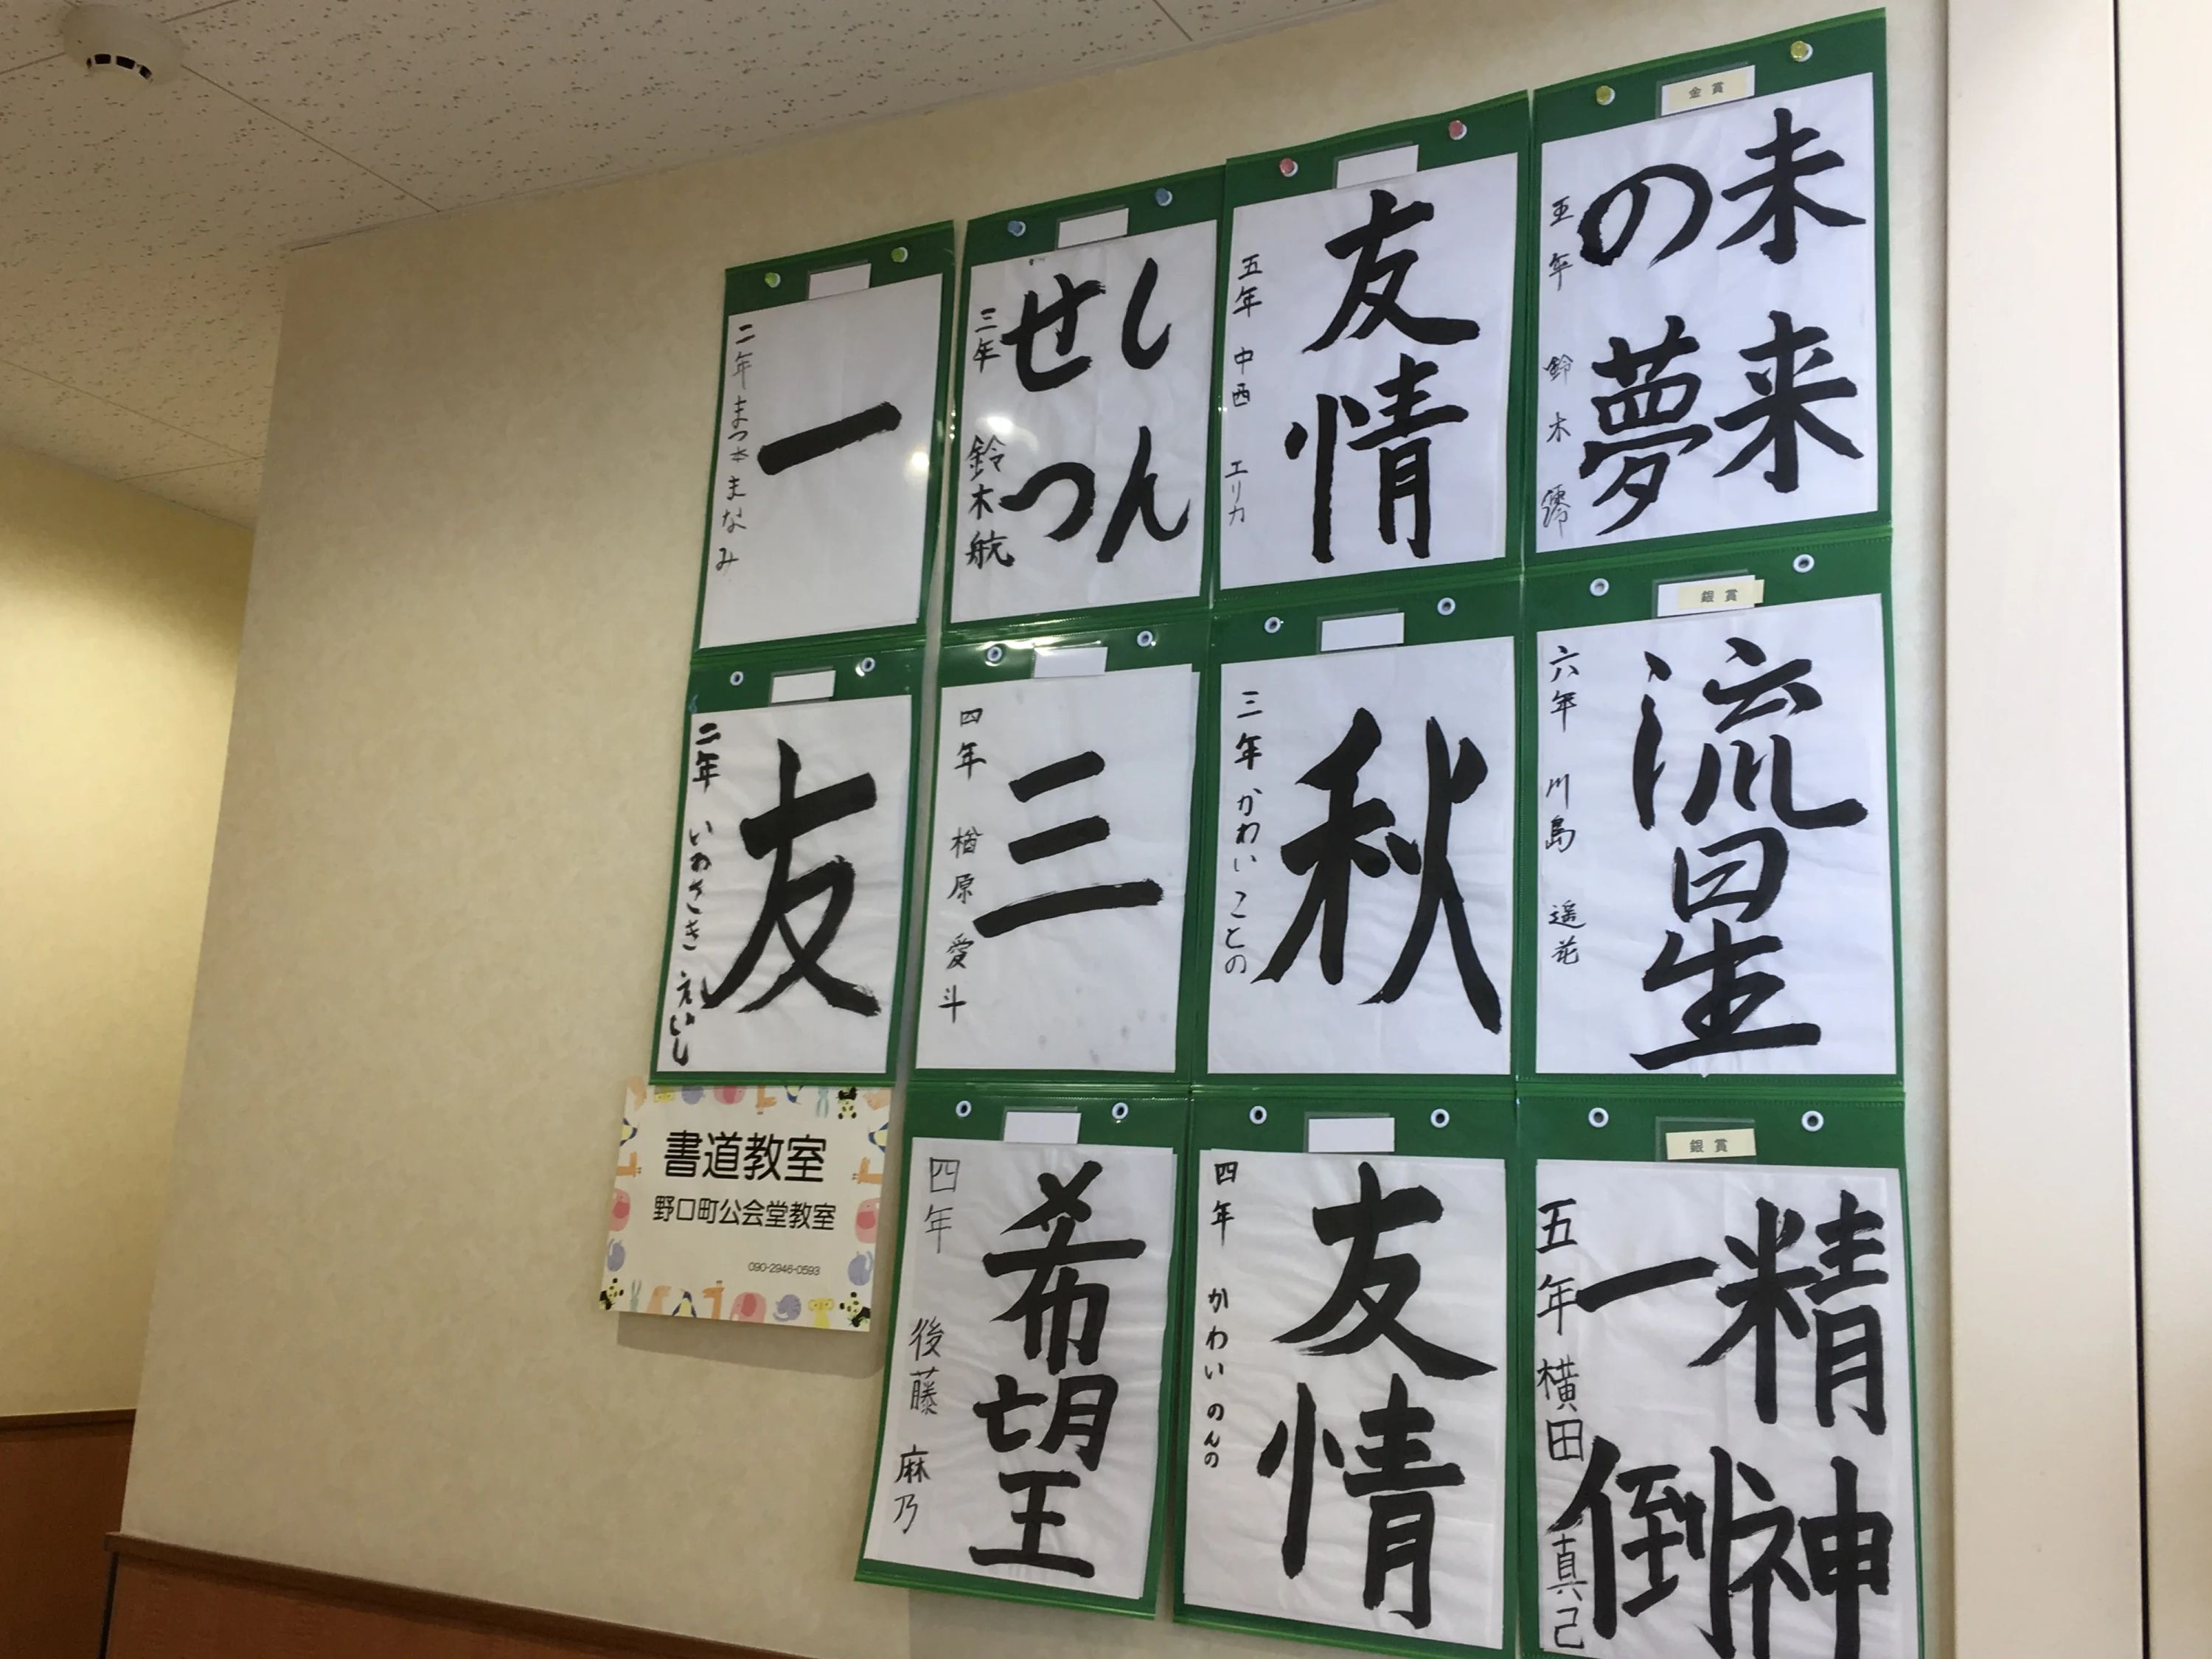 金賞
未来
の夢
五年 鈴木 澪
友情
五年 中西 エリカ
しん
せつ
三年 鈴木航
一
二年 まつ本まなみ
銀賞
流星
六年 川島 遥花
秋
三年 かわい ことの
三
四年 楢原 愛斗
友
二年 いわさき えいじ
銀賞
精神
一倒
五年 横田 真己
友情
四年 かわい のんの
希望
四年 後藤 麻乃
書道教室
野口町公会堂教室
090-2946-0593